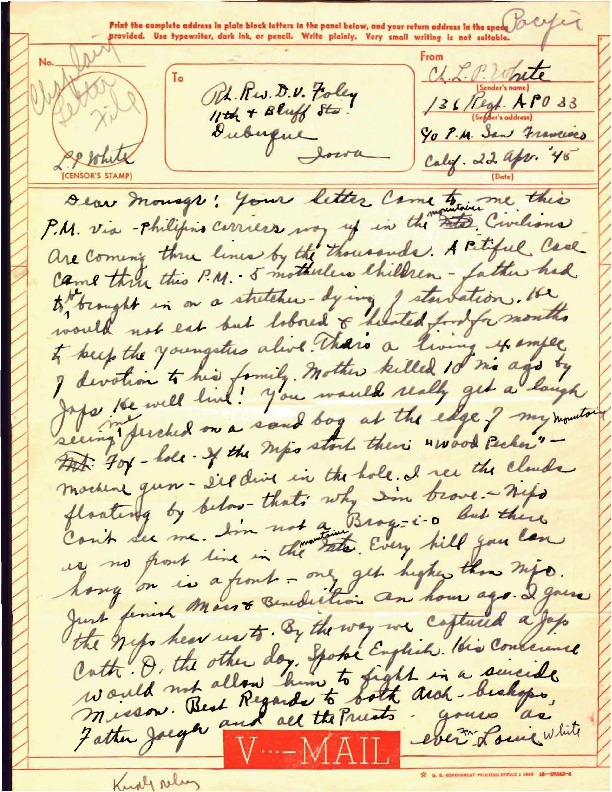 Print the complete address in plain block letters in the panel below, and your return address in the space
provided. Use typewriter, dark ink, or pencil. Write plainly. Very small writing is not suitable.
Pacific
No.
Chaplain
Letter
File
L.P. White
(CENSOR'S STAMP)
To
Rt. Rev. D.V. Foley
11th & Bluff Sts.
Dubuque
Iowa
From
Ch. L. P. White
(Sender's name)
136 Regt. APO 33
(Sender's address)
c/o P.M. San Francisco
Calif. 22 Apr. '45
(Date)
Dear Monsgr: Your letter came to me this
P.M. via - Philipino carriers way up in the mountains. Civilians
are coming thru lines by the thousands. A Pitiful Case
came thru this P.M. - 5 motherless children - father had
to be brought in on a stretcher - dying of starvation. He
would not eat but labored & hunted food for months
to keep the youngsters alive. There's a living example
of devotion to his family. Mother killed 10 mo ago by
Japs. He will live! You would really get a laugh
seeing me perched on a sand bag at the edge of my mountain
Fox-hole. If the Nips start their "Wood Pecker" -
machine gun - I'll dive in the hole. I see the clouds
floating by below - that's why I'm brave. - Nips
can't see me. I'm not a Brag-i-o but there
is no front line in the mountains. Every hill you can
hang on is a front - only get higher than Nips.
Just finish Mass & Benediction an hour ago. I guess
the Nips hear us to. By the way we captured a Jap
Cath. O. the other day. Spoke English. His conscience
would not allow him to fight in a suicide
Misson. Best Regards to both Arch-bishops,
Father Jaeger and all the Priests. Yours as
ever Fr. Louie White
V···—MAIL
U. S. GOVERNMENT PRINTING OFFICE